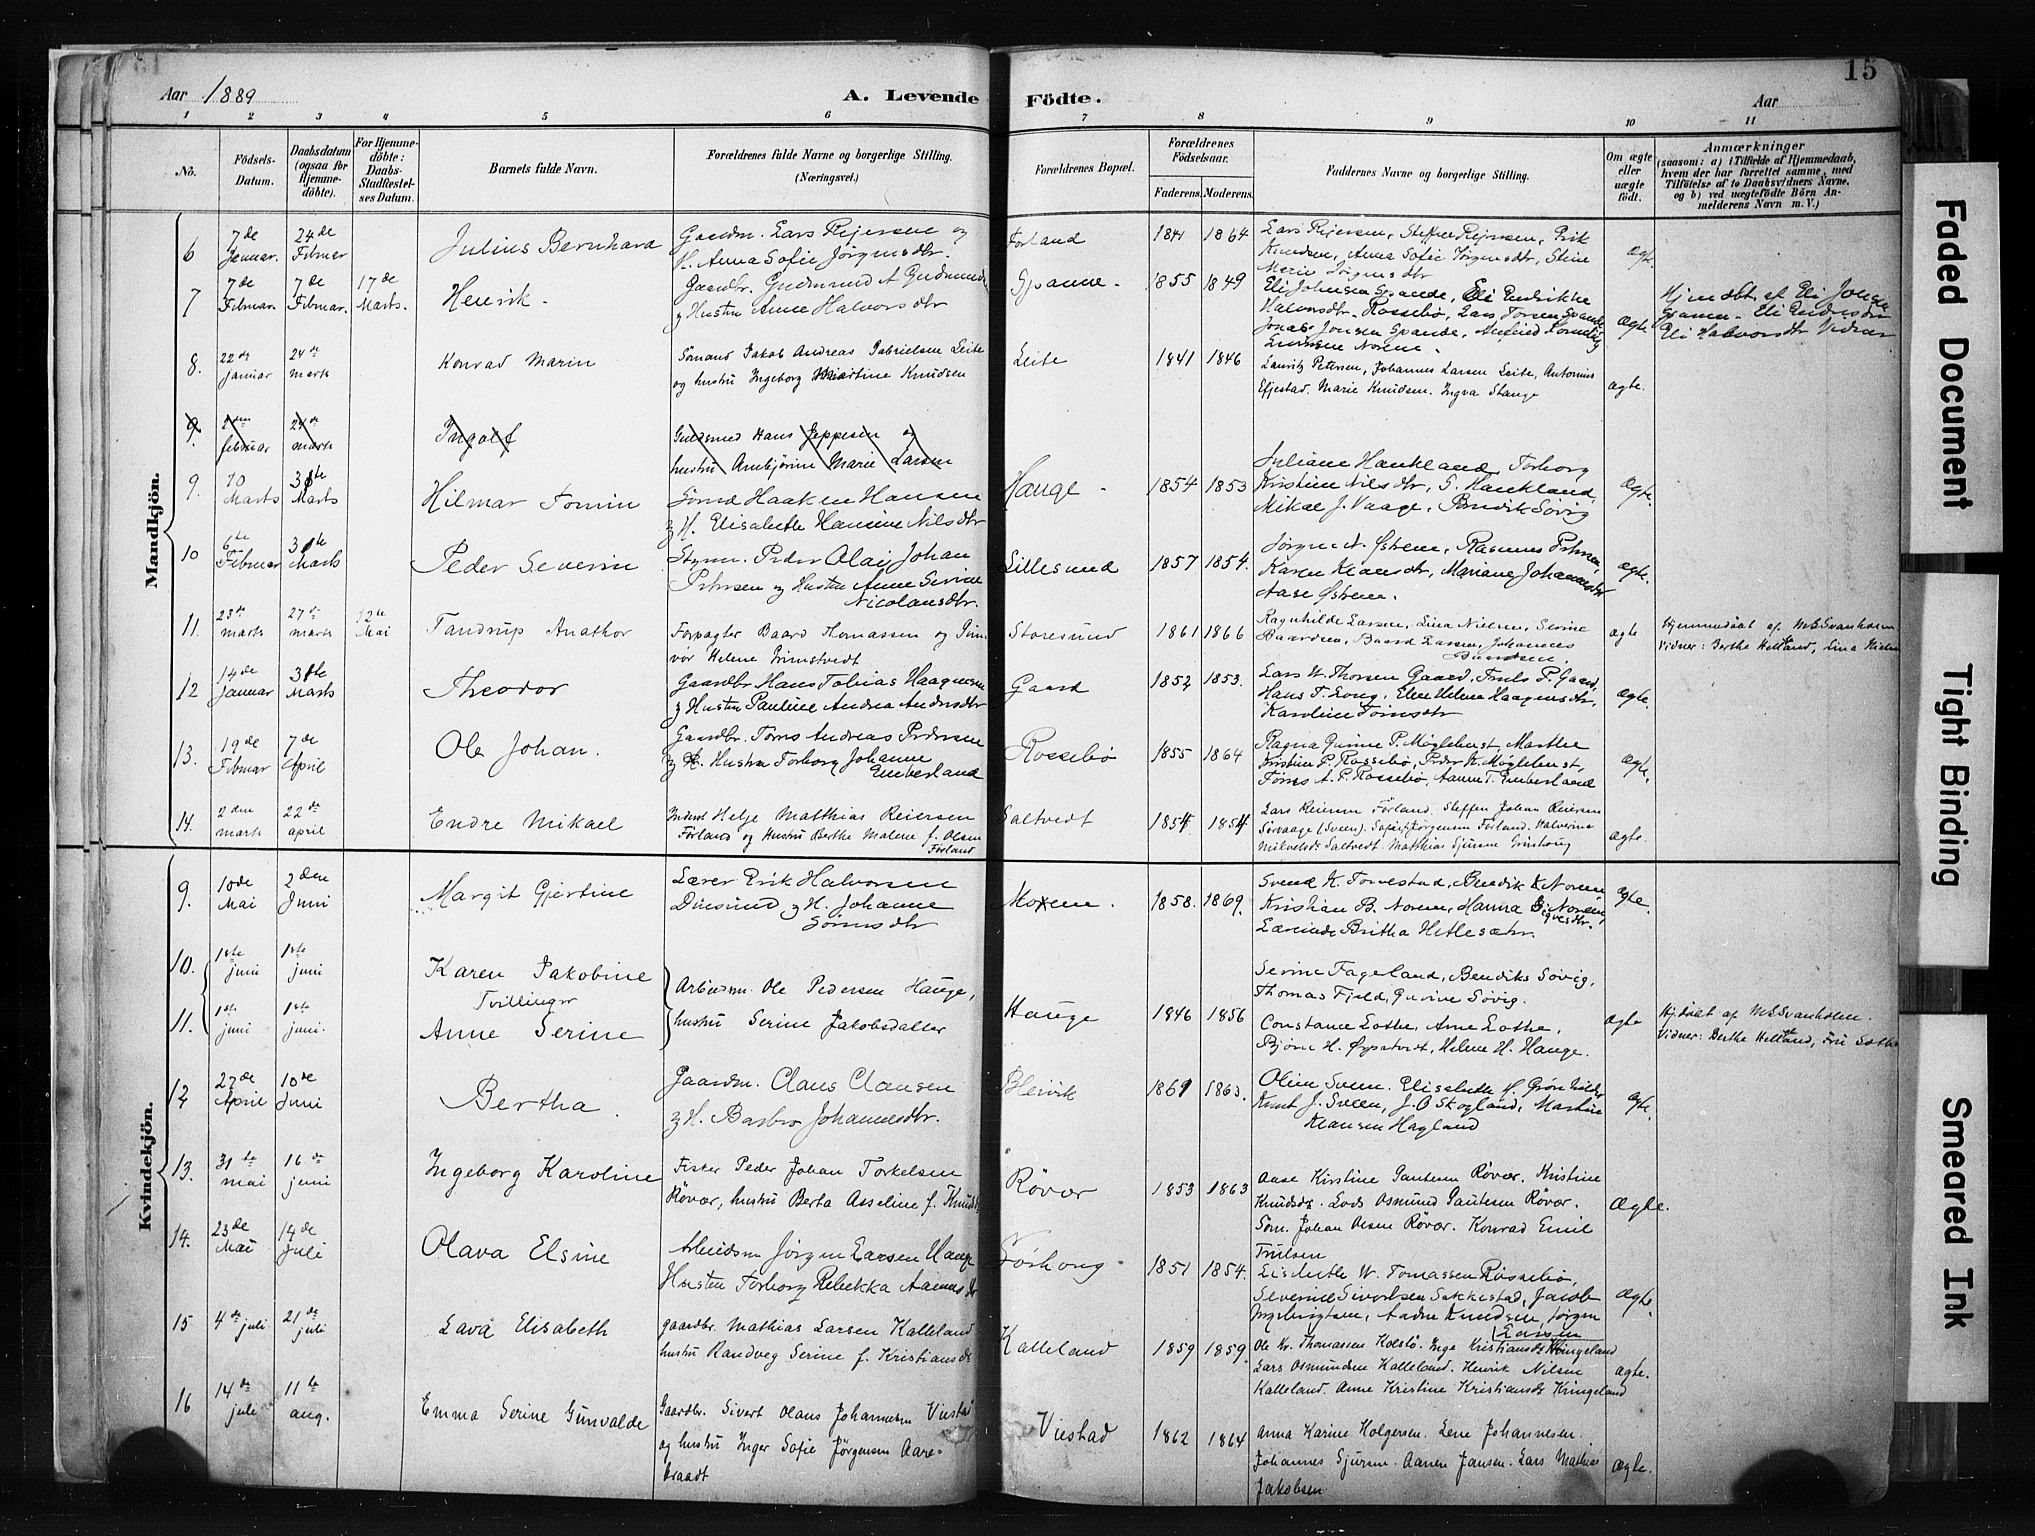 Aar 1889
A. Levende Födte.
Aar
15
1 2 3 4 5 6 7 8 9 10 11
No.
Födsels-Datum.
Daabsdatum (ogsaa for Hjemme-döbte).
For Hjemme-döbte: Daabs-Stadfæstel-ses Datum.
Barnets fulde Navn.
Forældrenes fulde Navne og borgerlige Stilling. (Næringsvei.)
Forældrenes Bopæl.
Forældrenes Födselsaar.
Faderens. Moderens.
Faddernes Navne og borgerlige Stilling.
Om ægte eller uægte födt.
Anmærkninger
(saasom: a) i Tilfælde af Hjemmedaab, hvem der har forrettet samme, med Tilföielse af to Daabsvidners Navne, og b) ved uægtefödte Börn An-melderens Navn m. V.)
Mandkjön.
6 7de Januar. 24de Februar Julius Bernhard Gaardm. Lars Rejersen og
H. Anna Sofie Jørgensdtr. Førland 1841 1864 Lars Rejersen, Steffen Rejersen, Erik
Knudsen, Anna Sofie Jørgensdtr, Stine
Marie Jørgensdtr ægte
7 7de Februar 7de Februar. 17de Marts. Henrik. Gaardbr. Gudmund A
og Hustru Anne Halvorsdtr Spanne. 1855 1849
Jonas Jonsen Spande, ægte
8. 22de januar 24de marts Konrad Marin Sömand Jakob Andreas Gabrielsen Leite
og hustru Ingeborg Martine Knudsen Leite 1841 1846 Lauritz Petersen, Johannes Larsen Leite, Antonius
Efjestad. Marie Knudsen. Ingva Stange ægte.
9. 2den februar 24de marts Ingolf Guldsmed Hans Jeppesen og
hustru Arnbjørine Marie Larsen
9. 10 Marts 31te Marts Hilmar Tomin Sømd Haaken Hansen
og H. Elisabeth Hansine Nilsdtr Hauge. 1854 1853 Juliane Haukland, Torborg
Kristine Nilsdtr, S. Haukland,
Mikal J. Vaage, Bendik Søvig ægte.
10 6te Februar 31te Marts Peder Severin Styrm. Peder Olai Johan
Petersen og Hustru Anne Serine
Nicolausdtr. Lillesund 1857 1854. Jørgen N. Østrem, Rasmus Petersen,
Karen Klausdtr, Mariane Johannesdtr
Aase Østrem. ægte.
11. 23de marts 27de marts 12te Mai Tandrup Anathor Forpagter Baard Thomassen og Gun-
vor Helene Grimstvedt Storesund 1861 1866 Ragnhilde Lassen, Lina Nielsen, Serine
Baardsen, Baard Lassen, Johannes ægte Hjemmedøbt af M S Svanholm
Vidner: Berthe Hetland, Lina Nielsen
12 14de Januar 31te Marts Theodor Gaardbr Hans Tobias Haagensen
og Hustru Pauline Andrea Andersdtr Gaard 1852 1853. Lars W. Thorsen Gaard, P. Gaard,
Hans T. Long, Elen Helene Haagensdtr,
Karoline Tørresdtr ægte.
13. 19de Februar 7de April Ole Johan. Gaardbr. Tørres Andreas Pedersen
og Hustru Torborg Johanne
Emberland Rossebø 1855 1864 Ragna Gurine P. Møglehust, Marthe
Kristine P. Rossebø, Peder K. Møglehust,
Tørres A. P. Rossebø, Aanen T. Emberland ægte.
14. 2den marts 22de april Endre Mikael Inderst Helje Matthias Reiersen
Förland og Hustru Berthe Malene f. Olsen
Förland Saltvedt 1854 1854 Lars Reiersen Förland. Steffen Johan Reiersen
Sörvaage (Sveen). Jörgensen Förland. Halvorine
Saltvedt. Matthias Sjursen ægte.
Kvindekjön.
9. 10de Mai 2den Juni Margit Gjertine Lærer Erik Halvorsen
Duesund og H. Johanne
Sørensdtr Moxem. 1858. 1869. Svend K. Førrestad, Bendik K Norem
Kristian B. Norem, Hanna Norem,
Lærerinde Britha Hetlesæter. ægte.
10. 1ste juni 1ste juni Karen Jakobine
Tvillinger
11. 1ste juni 1ste juni. Anne Serine Arbeidsm. Ole Pedersen Hauge,
hustru Serine Jakobsdatter Hauge 1846 1856 Serine Fageland, Bendiks Søvig,
Thomas Fjeld, Gurine Søvig.
Constance Lothe, Arne Lothe,
Bjørn H. Helene H. Hauge. ægte Hjdøbt af M S Svanholm.
Vidner: Berthe Hetland,
12 27de April 10de Juni Bertha. Gaardm. Claus Clausen
og H. Barbro Johannesdtr. Bleivik 1861 1863. Oline Sveen. Elisabeth
Knut J. Sveen, J. O Skogland, Martin
Klausen Hagland ægte.
13. 31te mai 16de juni Ingeborg Karoline Fisker Peder Johan Torkelsen
Rövær, hustru Berta Asseline f. Knudsdtr Rövær 1853 1863 Aase Kirstine Gautesen Rövær. Kristine
Knudsdtr. Lods Osmund Gautesen Rövær.
Söm. Johan Olsen Rövær. Konrad Emil
Trulsen ægte.
14. 23de Mai 14de Juli Olava Elsine Arbeidsm Jørgen Larsen Hauge
Hustru Torborg Rebekka Aanensdtr 1851 1854. Lisbeth W. Tomassen Røssebø,
Severine Sivertsen Sakkestad, Jacob
Ingebrigtsen, Aadne Knudsen, Jørgen
Larsen ægte.
15 4de juli 21de juli Lava Elisabeth gaardbr. Mathias Larsen Kalleland
hustru Randveg Serine f. Kristiansdtr Kalleland 1859 1859. Ole Kr. Thomassen Inga Kristiansdtr Kringeland
Lars Osmundsen Kalleland. Henrik Nilsen
Kalleland. Anne Kristine Kristiansdtr Kringeland ægte.
16 14de juli 11te aug. Emma Serine Gunvalde Gaardbr. Sivert Olaus Johannesen Viestad
og hustru Inger Sofie Jörgensen Aare-
braadt Viestad 1862 1864 Anna Karine Holgersen. Lene Johannesen.
Johannes Sjursen. Aanen Jansen. Lars Mathias
Jakobsen ægte.
Faded Document
Tight Binding
Smeared Ink